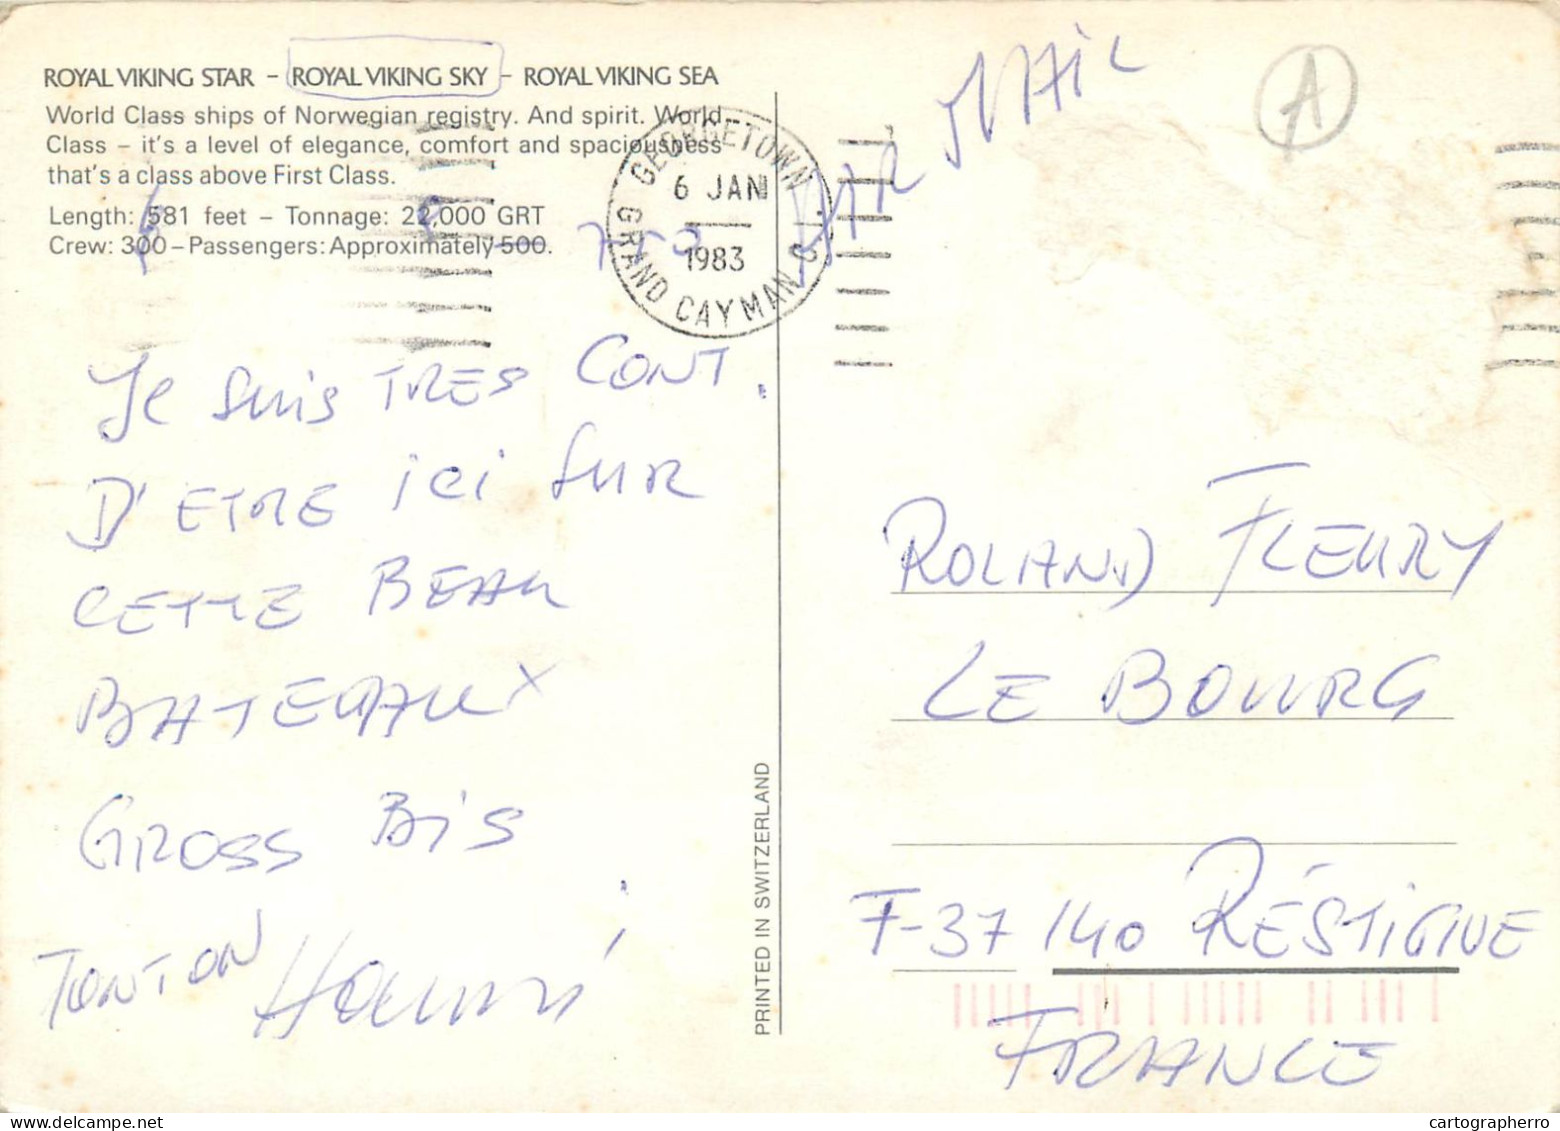 ROYAL VIKING STAR – ROYAL VIKING SKY – ROYAL VIKING SEA
World Class ships of Norwegian registry. And spirit. World
Class – it's a level of elegance, comfort and spaciousness
that's a class above First Class.
Length: 581 feet – Tonnage: 22,000 GRT
Crew: 300 – Passengers: Approximately 500.
750
GEORGETOWN
6 JAN
1983
GRAND CAYMAN
PAR MAIL
A
JE SUIS TRES CONT.
D'ETRE ICI SUR
CETTE BEAU
BATEAUX
GROSS BIS
TONTON
PRINTED IN SWITZERLAND
ROLAND FLEURY
LE BOURG
F-37 140 RÉSTIGNE
FRANCE
cartographerro